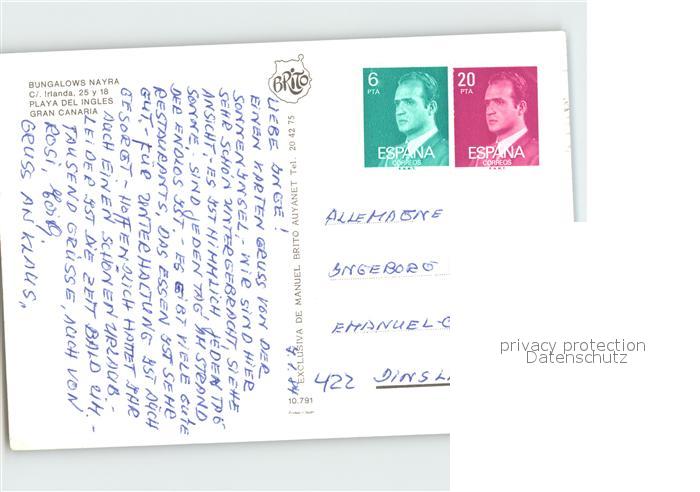 BUNGALOWS NAYRA
C/. Irlanda, 25 y 18
PLAYA DEL INGLES
GRAN CANARIA
BRITO
EXCLUSIVA DE MANUEL BRITO AUYANET Tel. 20 42 75
10.791
LIEBE INGE!
EINEN KARTENGRUSS VON DER
SONNENINSEL,- WIR SIND HIER
SEHR SCHÖN UNTERGEBRACHT, SIEHE
ANSICHT,- ES IST HIMMLICH JEDEN TAG
SONNE, SIND JEDEN TAG AM STRAND
DER ENDLOS IST,- ES GIBT VIELE GUTE
RESTAURANTS, DAS ESSEN IST SEHR
GUT,- FÜR UNTERHALTUNG IST AUCH
GESORGT - HOFFENDLICH HATTET IHR
AUCH EINEN SCHÖNEN URLAUB,-
LEIDER IST DIE ZEIT BALD UM.-
TAUSEND GRÜSSE, AUCH VON
ROSI
GRUSS AN KLAUS,
6 PTA
ESPAÑA
CORREOS
20 PTA
ESPAÑA
CORREOS
ALLEMAGNE
INGEBORG
EMANUEL-
422 DINSL
privacy protection
Datenschutz